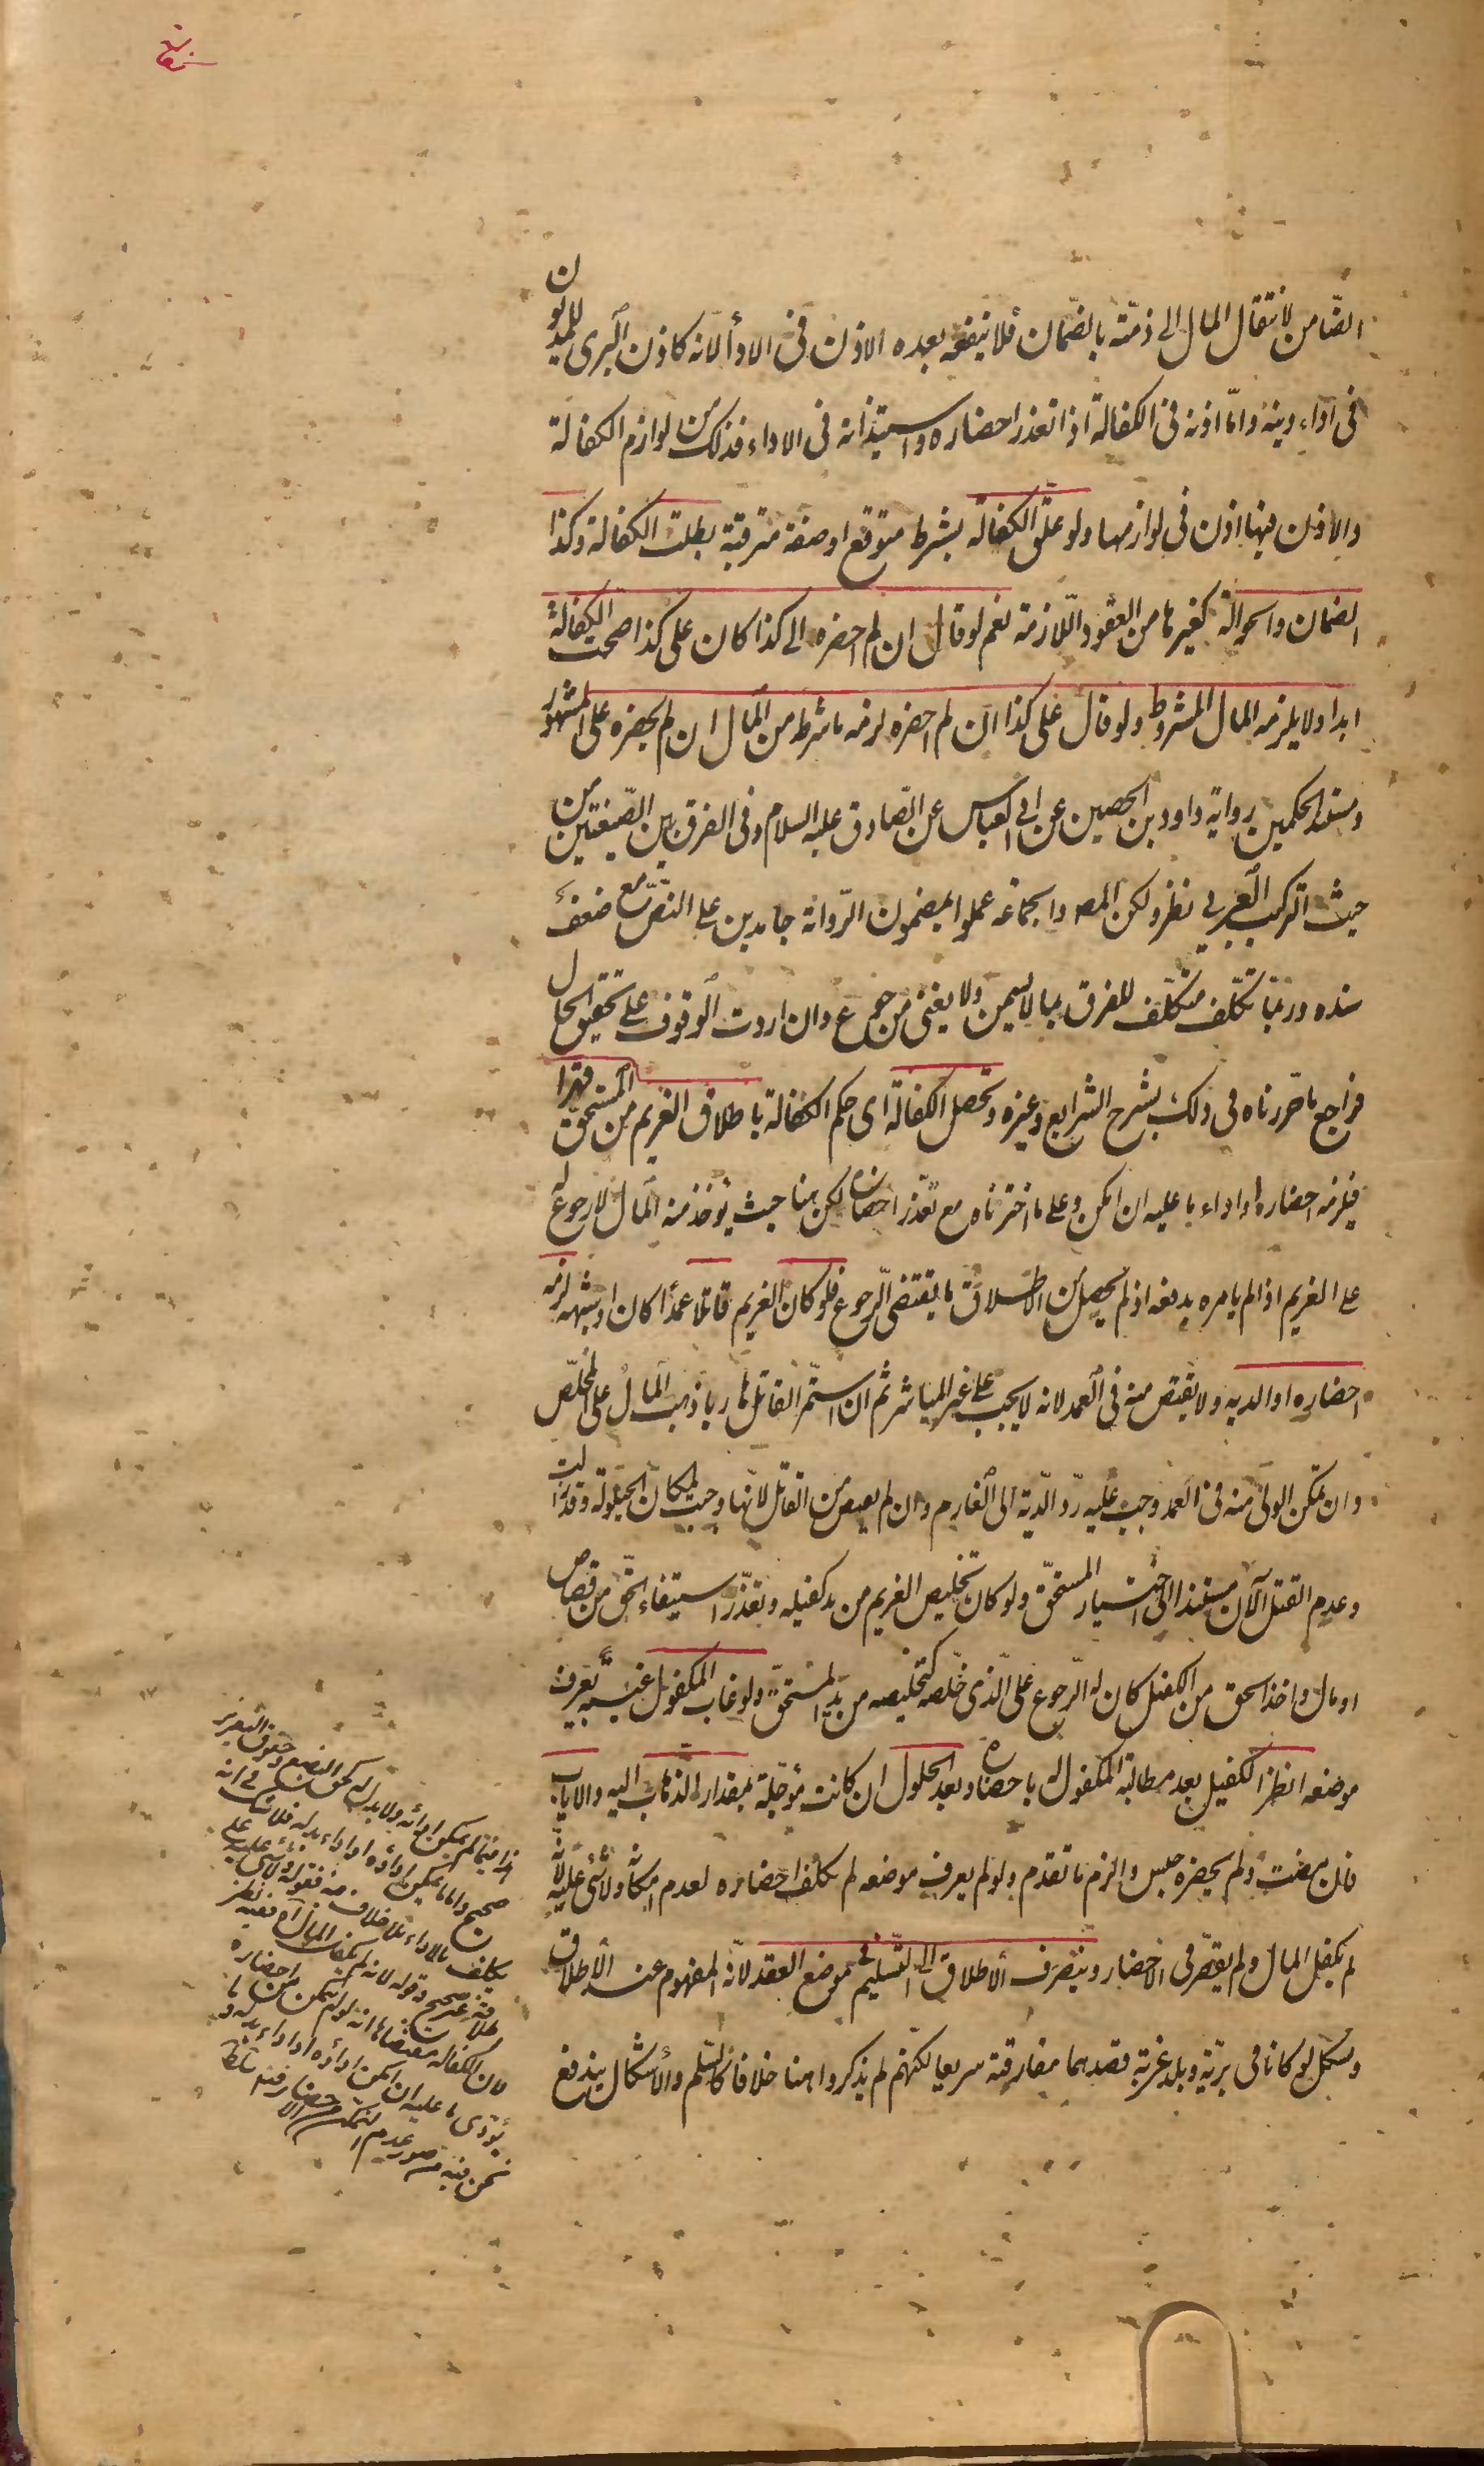 الضّامن لانتقال المال الى ذمّته بالضّمان فلا ينفعه بعده الاذن فى الاداء لانه كاذن البرى للمديون
فى اداء دينه وامّا اذنه فى الكفالة اذا تعذر احضاره واستيذانه فى الاداء فذلك من لوازم الكفالة
والاذن فيها اذن فى لوازمها ولو علّق الكفالة بشرط متوقع او صفة مترقبة بطلت الكفالة وكذا
الضمان والحوالة كغيرها من العقود اللّازمة نعم لو قال ان لم احضره الى كذا كان على كذا صحت الكفالة
ابدا ولا يلزمه المال المشروط ولو قال على كذا ان لم احضره لزمه ما شرط من المال ان لم يحضره على المشهور
ومستند الحكمين رواية داود بن الحصين عن ابى العباس عن الصّادق عليه السلام وفى الفرق بين الصّيغتين من
حيث التركيب العربى نظر ولكن المص والجماعة عملوا بمضمون الرّواية جامدين على النّصّ مع ضعف
سنده وربّما تكلّف متكلّف للفرق بما لا يسمن ولا يغنى من جوع وان اردت الوقوف على تحقيق الحال
فراجع ما حرّرناه فى ذلك بشرح الشرايع وغيره وتحصل الكفالة اى حكم الكفالة باطلاق الغريم من المستحق قهرا
فيلزمه احضاره او اداء ما عليه ان امكن وعلى ما اخترناه مع تعذّر احضاره لكن هنا حيث يؤخذ منه المال لا رجوع له
على الغريم اذا لم يامره بدفعه اذ لم يحصل من الاطلاق ما يقتضى الرّجوع فلو كان الغريم قاتلا عمدا كان او شبهه لزمه
احضاره او الدية ولا يقتص منه فى العمد لانه لا يجب على غير المباشر ثم ان استمرّ القاتل هاربا ذهب المال على المخلّص
وان تمكن الولى منه فى العمد وجب عليه ردّ الدّية الى الغارم وان لم يقتص من القاتل لانّها وجبت لمكان الحيلولة وقد زالت
وعدم القتل الآن مستند الى اختيار المستحقّ ولو كان تخليص الغريم من يد كفيله وتعذّر استيفاء الحقّ من قصاص
او مال واخذ الحق من الكفيل كان له الرّجوع على الّذى خلّصه كتخليصه من يد المستحقّ ولو غاب المكفول غيبة يعرف
موضعه انظر الكفيل بعد مطالبة المكفول له باحضاره وبعد الحلول ان كانت مؤجّلة بمقدار الذهاب اليه والاياب
فان مضت ولم يحضره حبس والزم ما تقدم ولو لم يعرف موضعه لم يكلف احضاره لعدم امكانه ولا شئ عليه لانه
لم يكفل المال ولم يقصّر فى الاحضار وينصرف الاطلاق الى التّسليم فى موضع العقد لانّه المفهوم عند الاطلاق
ويشكل لو كانا فى بريّة او بلد غربة قصدهما مفارقته سريعا لكنّهم لم يذكروا هنا خلافا كالسّلم والاشكال يندفع
هذا فيما لم يمكن اداؤه ولا بدل له كحق البضع وحقوق التعزير
صحيح واما ما يمكن اداؤه او اداء بدله فلا شك فى انه
يكلف بالاداء بلا خلاف منه فقوله ولا شئ عليه على
اطلاقه غير صحيح وقوله لانه لم يكفل المال آه ففيه نظر
فان الكفالة مقتضاها انه لو لم يتمكن من احضاره
يؤدى ما عليه ان امكن اداؤه او اداء بدله وما
نحن فيه من صور عدم التمكن من الاحضار